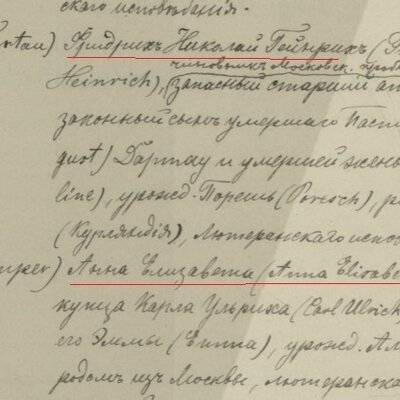 скаго исповѣданія.
rtau) Фридрихъ Николай Гейнрихъ (
чиновникъ Московск. проб
Heinrich), запасный старшій ап
законный сынъ умершаго Паст
gust) Дартау и умершей жены
line), урожд. Порешъ (Poresch), р
(Курляндія), лютеранскаго испов
mper) Анна Елизавета (Anna Elisabe
купца Карла Ульриха (Carl Ulrich
его Эммы (Emma), урожд. Ал
родомъ изъ Москвы, лютеранска